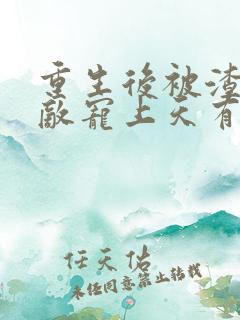 重生後被渣
敵寵上天有
任天佑
未经同意禁止转载